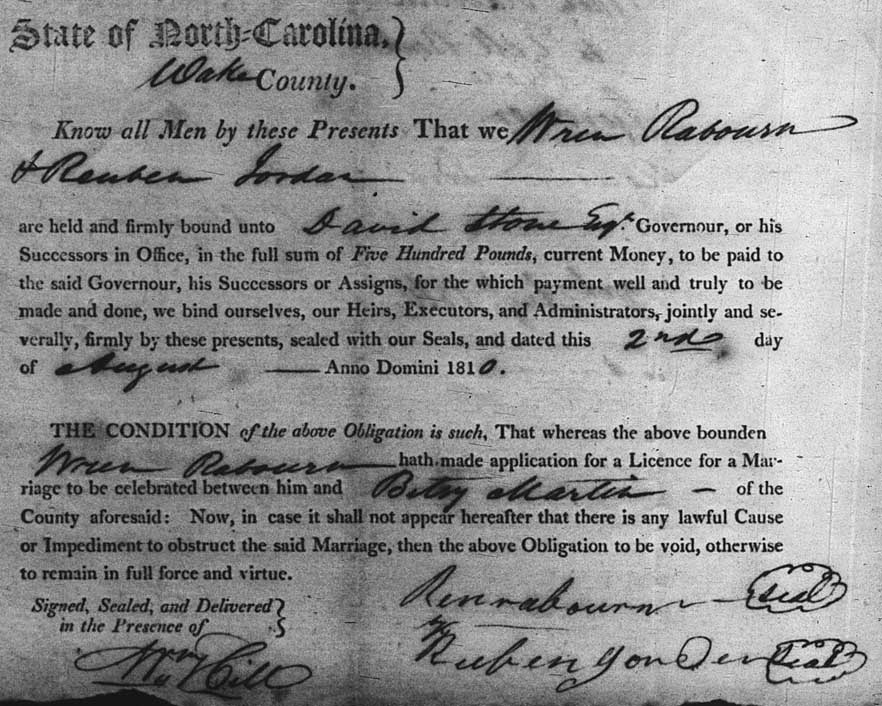 State of North-Carolina,
Wake County.
Know all Men by these Presents That we Wren Rabourn
& Reuben Jordan
are held and firmly bound unto David Stone Esqr. Governour, or his
Successors in Office, in the full sum of Five Hundred Pounds, current Money, to be paid to
the said Governour, his Successors or Assigns, for the which payment well and truly to be
made and done, we bind ourselves, our Heirs, Executors, and Administrators, jointly and se-
verally, firmly by these presents, sealed with our Seals, and dated this 2nd day
of August — Anno Domini 1810.
THE CONDITION of the above Obligation is such, That whereas the above bounden
Wren Rabourn hath made application for a Licence for a Mar-
riage to be celebrated between him and Betsy Martin — of the
County aforesaid: Now, in case it shall not appear hereafter that there is any lawful Cause
or Impediment to obstruct the said Marriage, then the above Obligation to be void, otherwise
to remain in full force and virtue.
Signed, Sealed, and Delivered
in the Presence of
Renrabourn seal
Ruben yonder seal
Wm Hill